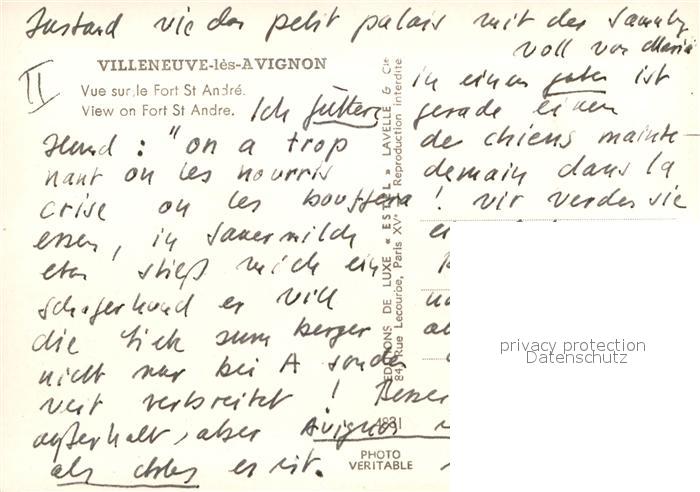 Zustand wie das petit palais mit der Sammlg
voll von Maria
II
VILLENEUVE-lès-AVIGNON
Vue sur le Fort St André.
View on Fort St Andre.
in einem guten ist
Ich füttere gerade einen
Hund : "on a trop de chiens mainte-
nant on les nourris demain dans la
crise on les bouffera ! wir werden sie
essen, in Sauermilch
eben stieß mich ein
schäferhund er will
die sich zum berger
nicht nur bei A sonder
weit verbreitet ! Besser
außerhalb, aber Avignon
als es ist.
EDITIONS DE LUXE « ESTEL » LAVELLE & Cie
84, Rue Lecourbe, Paris XVe Reproduction interdite
4831
PHOTO
VERITABLE
privacy protection
Datenschutz